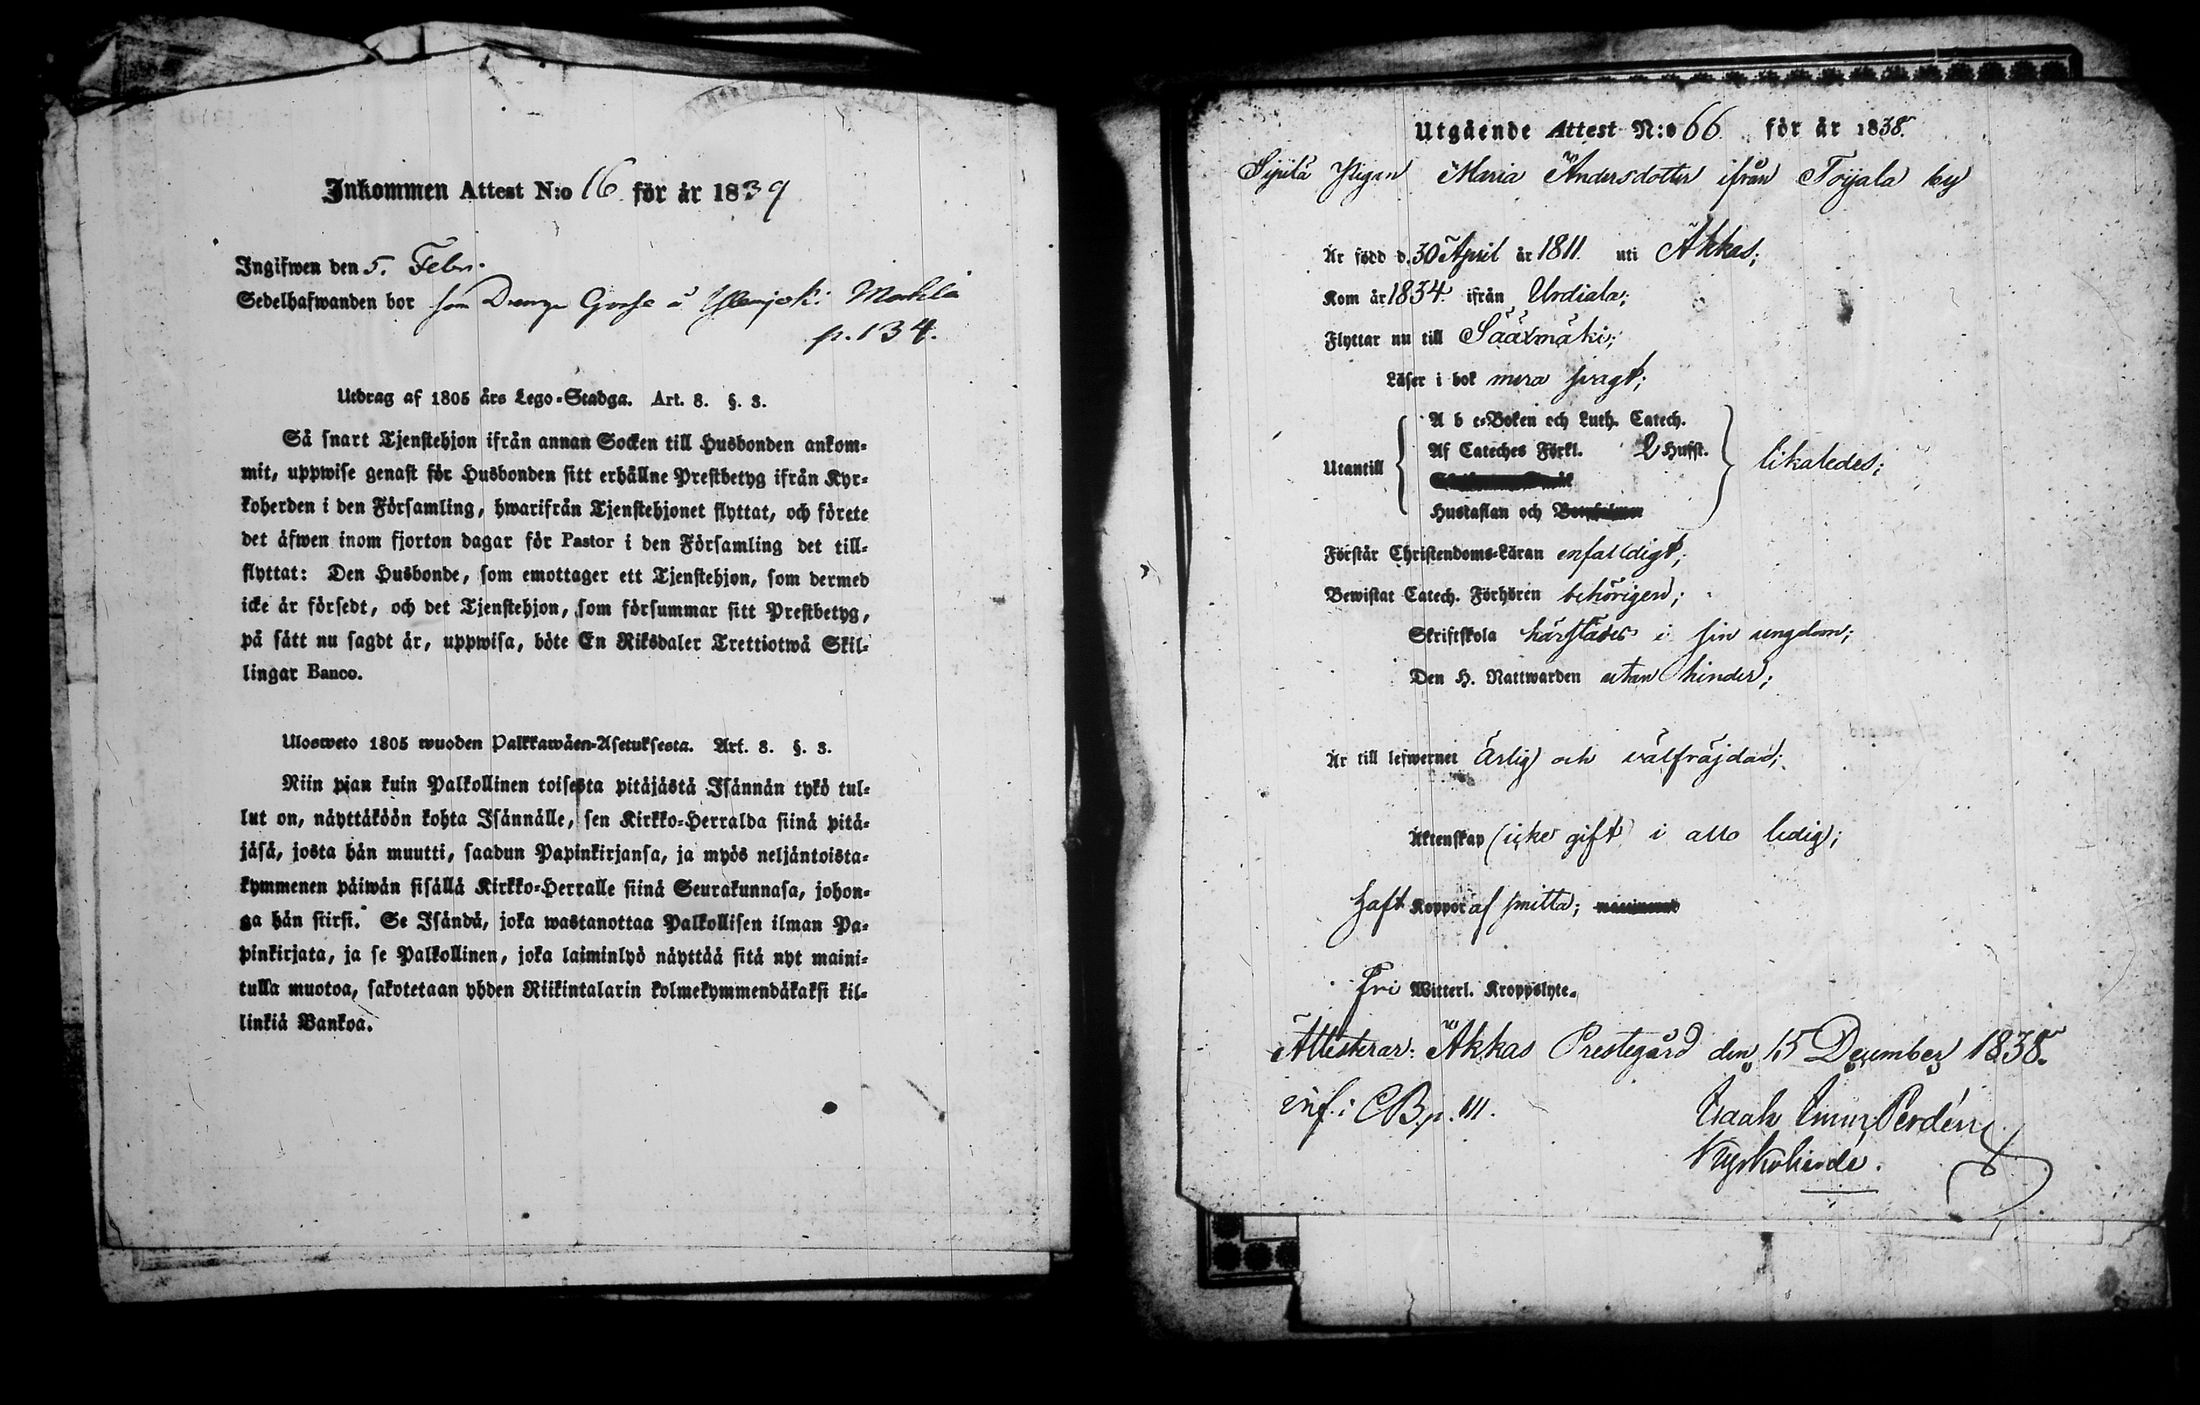 Inkommen Attest N:o 16 för år 1839
Ingifwen den 5. Febr.
Sedelhafwanden bor som Drenge Gosse å Ylenjoki Mackla
p. 134.
Utdrag af 1805 års Lego-Stadga. Art. 8. §. 3.
Så snart Tjenstehjon ifrån annan Socken till Husbonden ankom-
mit, uppwise genast för Husbonden sitt erhållne Prestbetyg ifrån Kyr-
koherden i den Församling, hwarifrån Tjenstehjonet flyttat, och förete
det äfwen inom fjorton dagar för Pastor i den Församling det till-
flyttat: Den Husbonde, som emottager ett Tjenstehjon, som dermed
icke är försedt, och det Tjenstehjon, som försummar sitt Prestbetyg,
på sätt nu sagdt är, uppwisa, böte En Riksdaler Trettiotwå Skil-
lingar Banco.
Ulosweto 1805 wuoden Palkkawäen-Asetuksesta. Art. 8. §. 3.
Niin pian kuin Palkollinen toisesta pitäjästä Isännän tykö tul-
lut on, näyttäköön kohta Isännälle, sen Kirkko-Herralda siinä pitä-
jäsä, josta hän muutti, saadun Papinkirjansa, ja myös neljäntoista-
kymmenen päiwän sisällä Kirkko-Herralle siinä Seurakunnasa, johon-
ga hän siirsi. Se Isändä, joka wastanottaa Palkollisen ilman Pa-
pinkirjata, ja se Palkollinen, joka laiminlyö näyttää sitä nyt maini-
tulla muotoa, sakotetaan yhden Riikintalarin kolmekymmendäkaksi kil-
linkiä Bankoa.
Utgående Attest N:o 66 för år 1838.
Sipilä Pigan Maria Andersdotter ifrån Toijala by
Är född d. 30 April år 1811 uti Akkas;
Kom år 1834 ifrån Urdiala;
Flyttar nu till Sääxmäki;
Läser i bok mera svagt;
A b c-Boken och Luth. Catech.
Af Cateches Förkl. 2 Hufst.
Utantill likaledes;
Hustaflan och
Förstår Christendoms-Läran enfalldigt;
Bewistat Catech. Förhören behörigen;
Skriftskola härstädes i sin ungdom;
Den H. Nattwarden utan hinder;
Är till lefwernet ärlig och välfräjdad;
Äktenskap (icke gift) i allo ledig;
Haft Koppor af smitta;
Fri Witterl. Kroppslyte.
Attesterar: Akkas Prestegård den 15 December 1838.
inf. i CB. p. 111.
Isaak Perdén
Kyrkoherde.